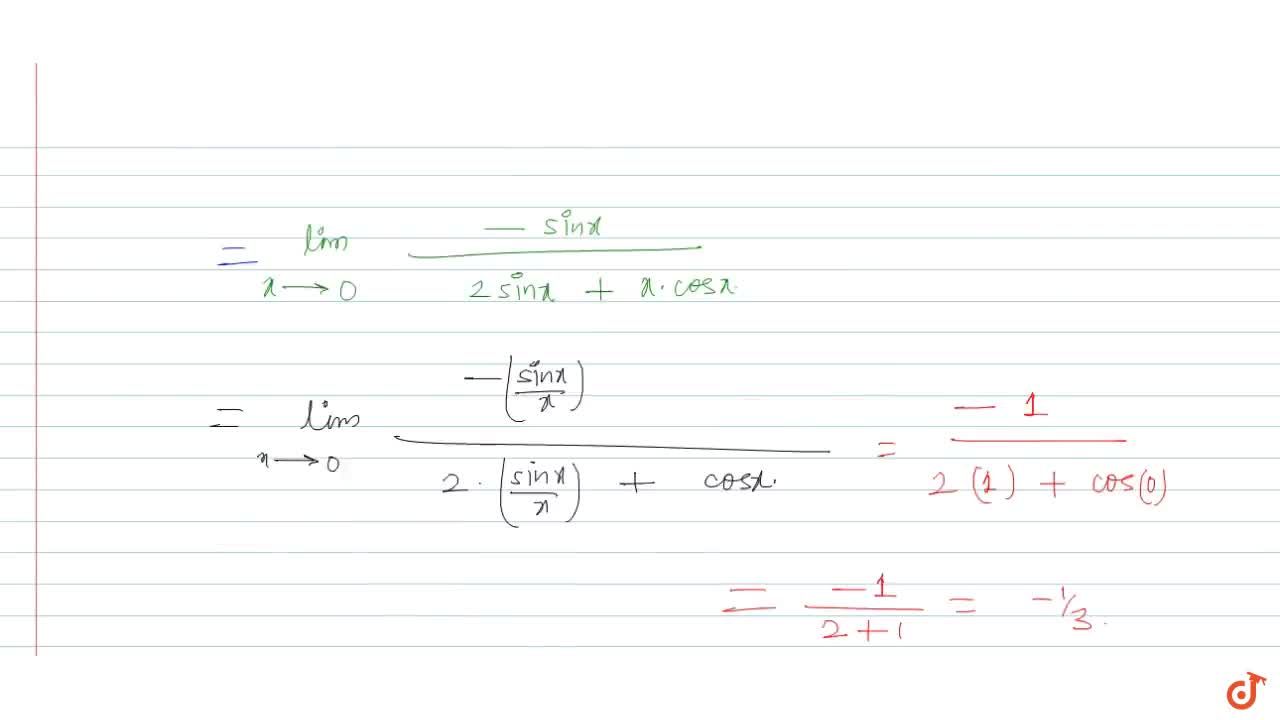 = lim x→0 (− sinx) / (2 sinx + x·cosx)
= lim x→0 (−(sinx/x)) / (2·(sinx/x) + cosx.) = (− 1) / (2 (1) + cos(0))
= (−1) / (2+1) = −1/3.